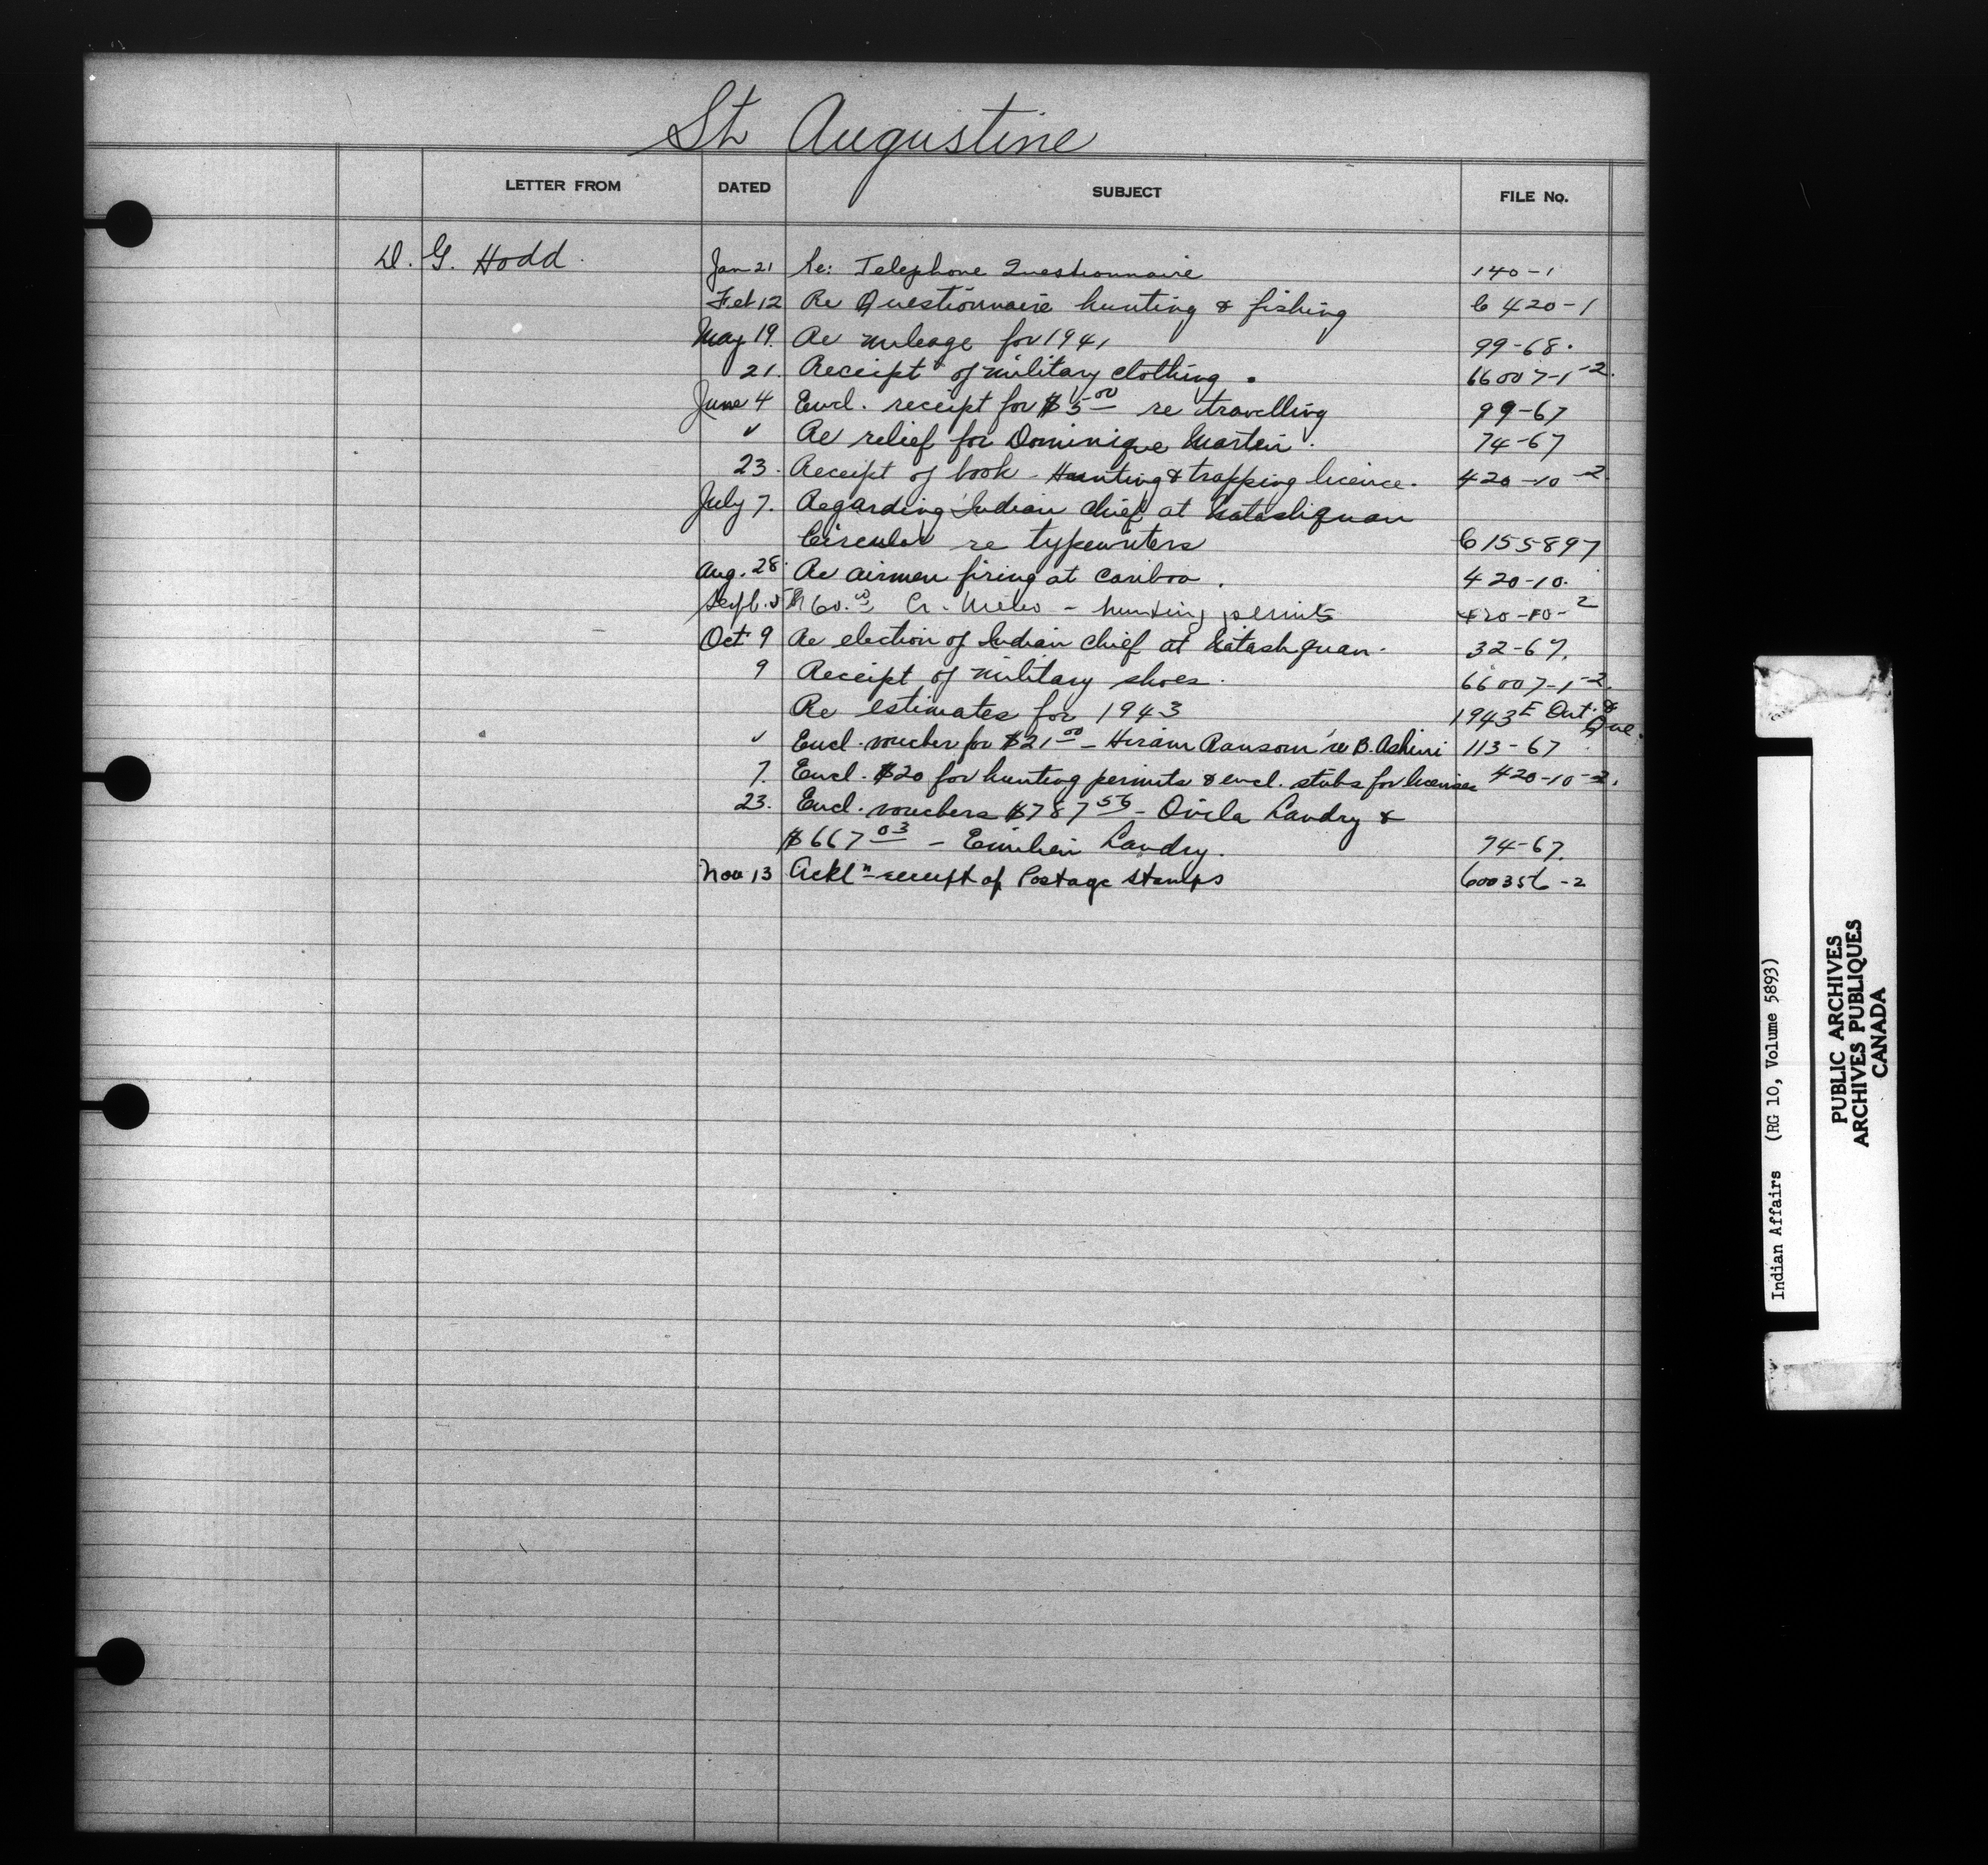 St Augustine
LETTER FROM DATED SUBJECT FILE No.
D. G. Hodd. Jan 21 Re: Telephone Questionnaire 140-1
Feb 12 Re Questionnaire hunting & fishing C 420-1
May 19. Re mileage for 1941 99-68.
21. Receipt of military clothing. 66007-1-2.
June 4 Encl. receipt for $5.00 re travelling 99-67
" Re relief for Dominique Martin. 74-67
23. Receipt of book - Hunting & trapping licence. 420-10-2.
July 7. Regarding Indian Chief at Natashquan
Circular re typewriters C 155897
Aug. 28. Re airmen firing at Cariboo. 420-10.
Sept. 5 60.00 Cr. - hunting permits 420-10-2
Oct 9 Re election of Indian Chief at Natashquan. 32-67.
9 Receipt of military shoes. 66007-1-2.
Re estimates for 1943 1943E Ont. &
Que.
" Encl. voucher for $21.00 - Hiram Ransom re B. Ashini 113-67
7. Encl. $20 for hunting permits & encl. stubs for licenses 420-10-2.
23. Encl. vouchers $787.56 - Ovila Landry &
$667.03 - Emilien Landry. 74-67.
Nov 13 Ackln receipt of Postage Stamps 600356-2
Indian Affairs (RG 10, Volume 5893)
PUBLIC ARCHIVES
ARCHIVES PUBLIQUES
CANADA